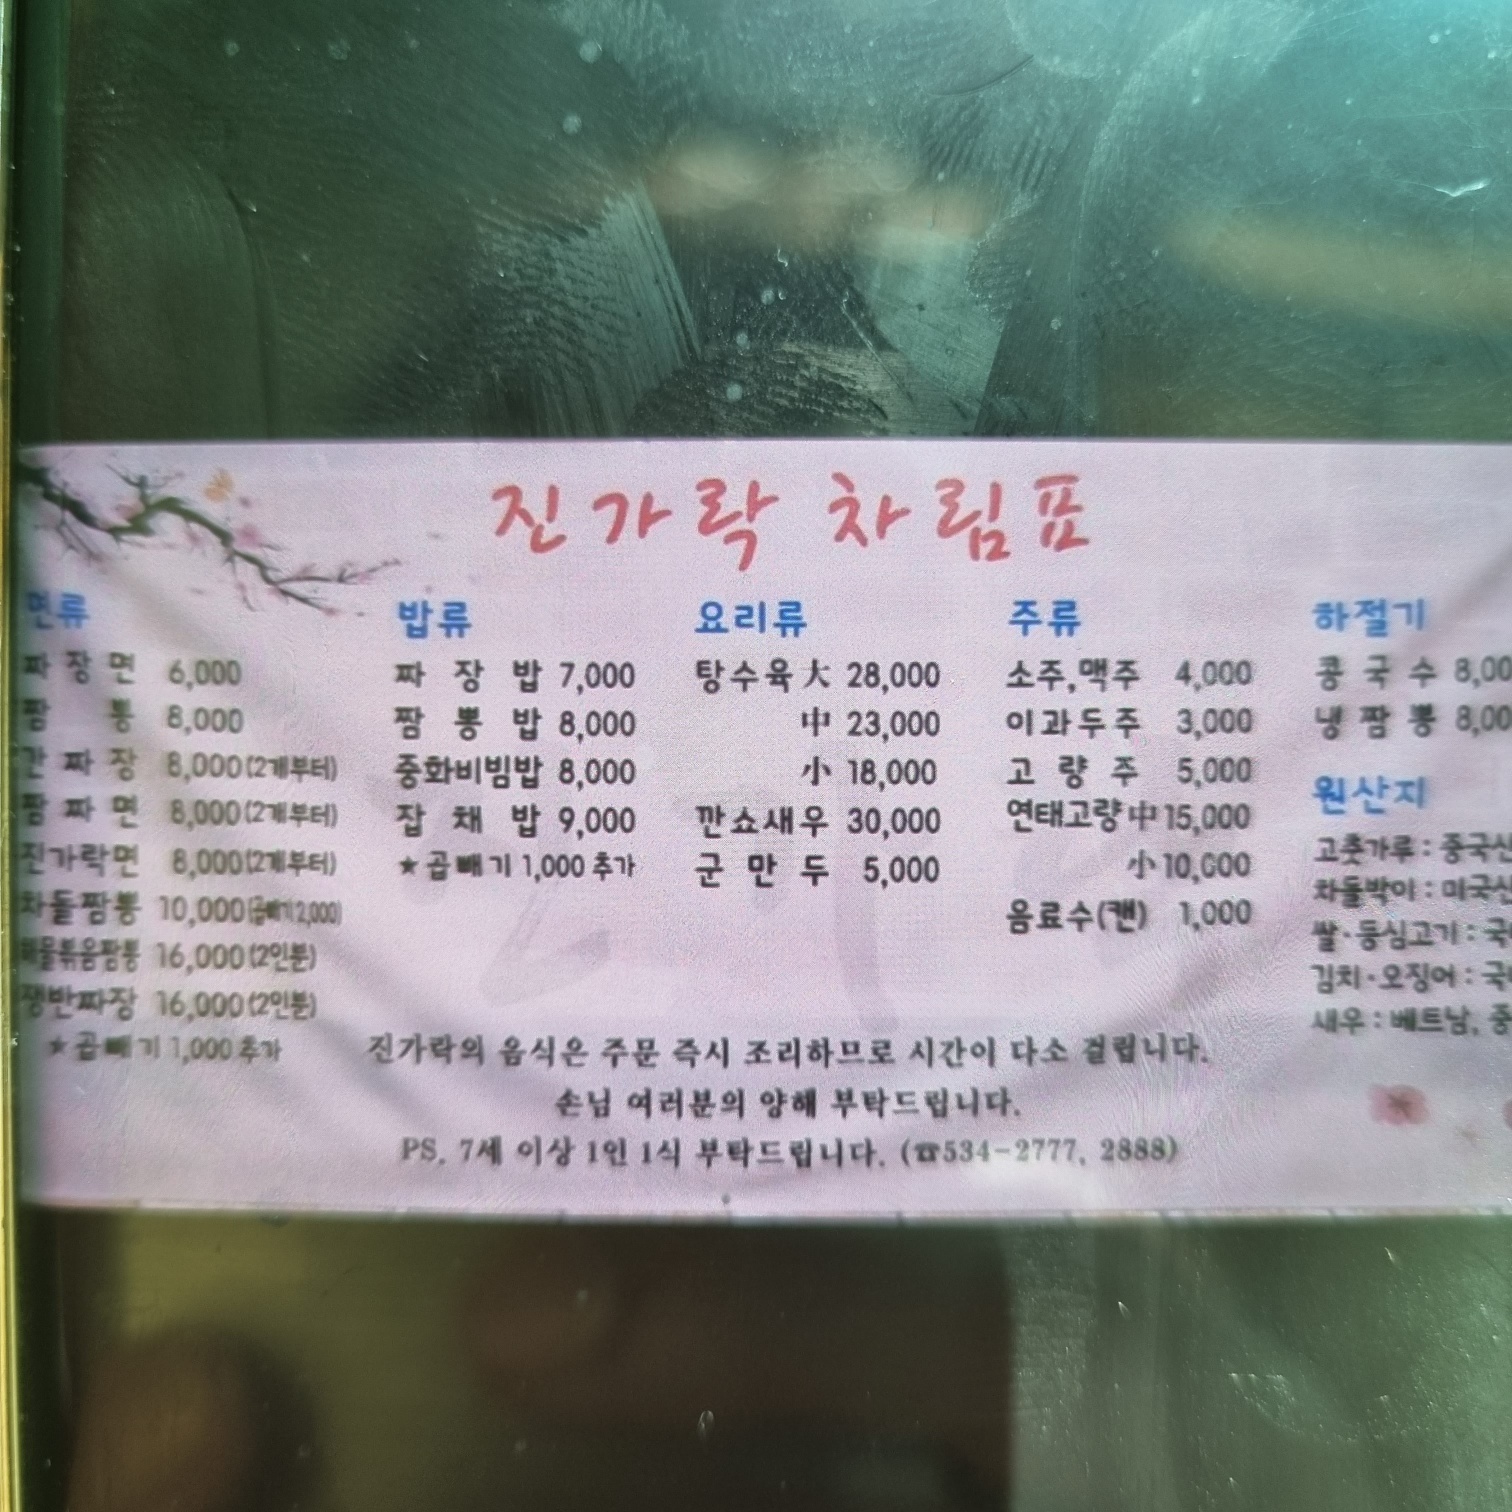 진가락 차림표
면류
짜장면 6,000
짬뽕 8,000
간짜장 8,000(2개부터)
짬짜면 8,000(2개부터)
진가락면 8,000(2개부터)
차돌짬뽕 10,000(곱빼기2,000)
해물볶음짬뽕 16,000(2인분)
쟁반짜장 16,000(2인분)
★곱빼기 1,000 추가
밥류
짜장밥 7,000
짬뽕밥 8,000
중화비빔밥 8,000
잡채밥 9,000
★곱빼기 1,000 추가
요리류
탕수육 大 28,000
中 23,000
小 18,000
깐쇼새우 30,000
군만두 5,000
주류
소주,맥주 4,000
이과두주 3,000
고량주 5,000
연태고량 中 15,000
小 10,000
음료수(캔) 1,000
하절기
콩국수 8,00
냉짬뽕 8,00
원산지
고춧가루 : 중국산
차돌박이 : 미국산
쌀·등심고기 : 국
김치·오징어 : 국
새우 : 베트남, 중
진가락의 음식은 주문 즉시 조리하므로 시간이 다소 걸립니다.
손님 여러분의 양해 부탁드립니다.
PS. 7세 이상 1인 1식 부탁드립니다. (☎534-2777, 2888)